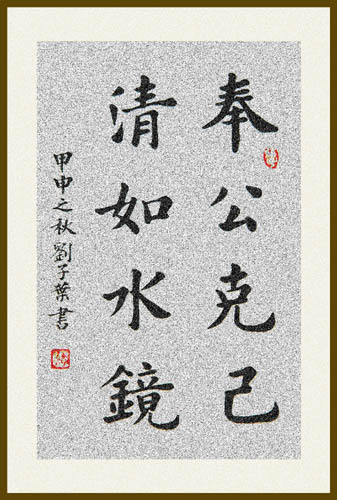 奉公克己
清如水鏡
甲申之秋劉子葉書